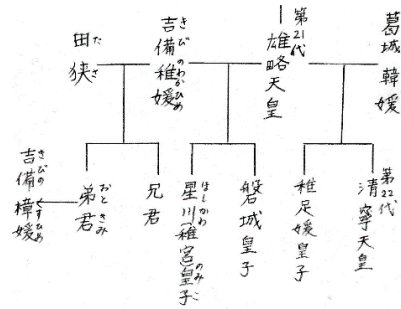 葛城韓媛
第21代
雄略天皇
吉備稚媛
きびのわかひめ
田狭
たさ
第22代
清寧天皇
稚足媛皇子
磐城皇子
星川稚宮皇子
ほしかわ
のみこ
兄君
弟君
おときみ
吉備樟媛
きびの
くすひめ